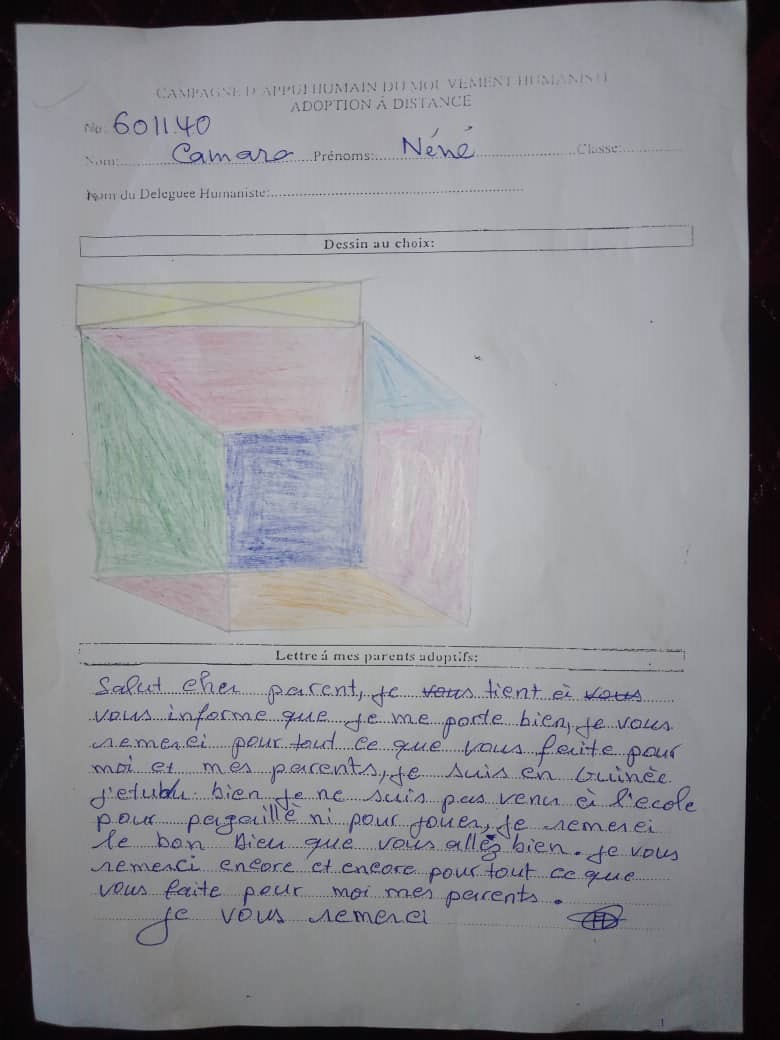 CAMPAGNE D'APPUI HUMAIN DU MOUVEMENT HUMANISTE
ADOPTION Á DISTANCE
No: 601140
Nom: Camara Prénoms: Néné Classe:
Nom du Deleguee Humaniste:
Dessin au choix:
Lettre á mes parents adoptifs:
Salut cher parent, je vous tient à vous
vous informe que je me porte bien, je vous
remerci pour tout ce que vous faite pour
moi et mes parents, je suis en Guinée
j'etudu bien je ne suis pas venu à l'ecole
pour pagaillè ni pour jouer, je remerci
le bon Dieu que vous allez bien. je vous
remerci encore et encore pour tout ce que
vous faite pour moi mes parents.
je vous remerci